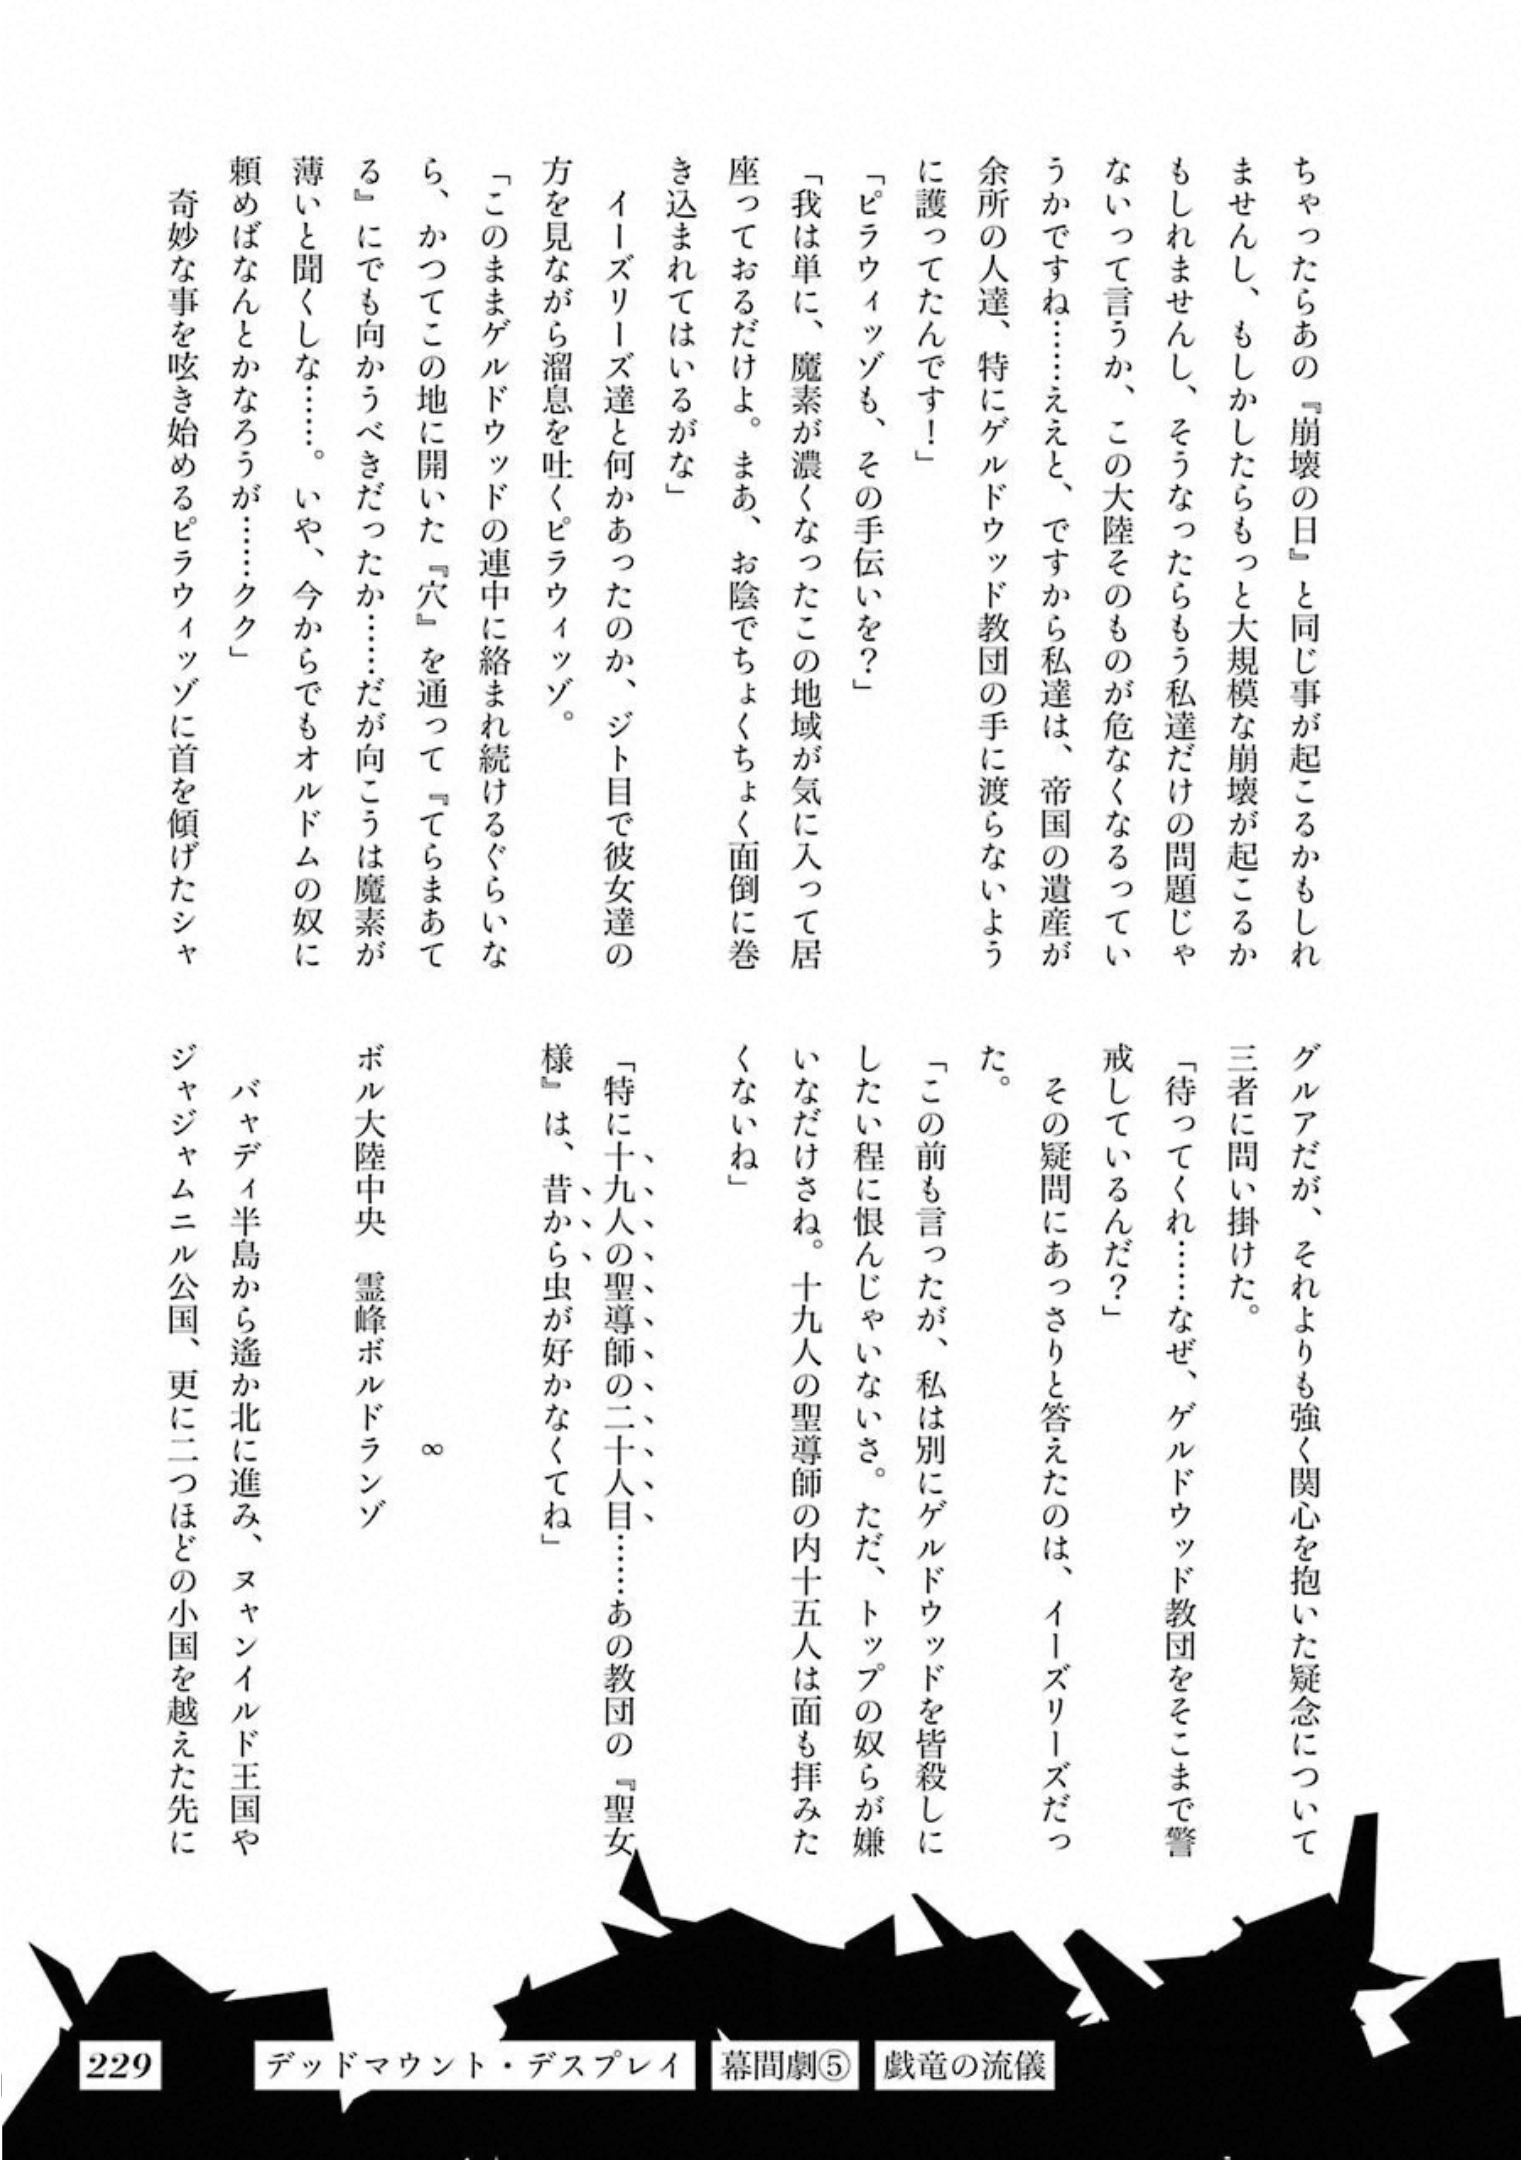 ちゃったらあの『崩壊の日』と同じ事が起こるかもしれ
ませんし、もしかしたらもっと大規模な崩壊が起こるか
もしれませんし、そうなったらもう私達だけの問題じゃ
ないって言うか、この大陸そのものが危なくなるってい
うかですね……ええと、ですから私達は、帝国の遺産が
余所の人達、特にゲルドウッド教団の手に渡らないよう
に護ってたんです！」
「ピラウィッゾも、その手伝いを？」
「我は単に、魔素が濃くなったこの地域が気に入って居
座っておるだけよ。まあ、お陰でちょくちょく面倒に巻
き込まれてはいるがな」
　イーズリーズ達と何かあったのか、ジト目で彼女達の
方を見ながら溜息を吐くピラウィッゾ。
「このままゲルドウッドの連中に絡まれ続けるぐらいな
ら、かつてこの地に開いた『穴』を通って『てらまあて
る』にでも向かうべきだったか……だが向こうは魔素が
薄いと聞くしな……。いや、今からでもオルドムの奴に
頼めばなんとかなろうが……クク」
　奇妙な事を呟き始めるピラウィッゾに首を傾げたシャ
グルアだが、それよりも強く関心を抱いた疑念について
三者に問い掛けた。
「待ってくれ……なぜ、ゲルドウッド教団をそこまで警
戒しているんだ？」
　その疑問にあっさりと答えたのは、イーズリーズだっ
た。
「この前も言ったが、私は別にゲルドウッドを皆殺しに
したい程に恨んじゃいないさ。ただ、トップの奴らが嫌
いなだけさね。十九人の聖導師の内十五人は面も拝みた
くないね」
「特に十九人の聖導師の二十人目……あの教団の『聖女
様』は、昔から虫が好かなくてね」
∞
ボル大陸中央　霊峰ボルドランゾ
　バャディ半島から遙か北に進み、ヌャンイルド王国や
ジャジャムニル公国、更に二つほどの小国を越えた先に
229
デッドマウント・デスプレイ
幕間劇⑤
戯竜の流儀